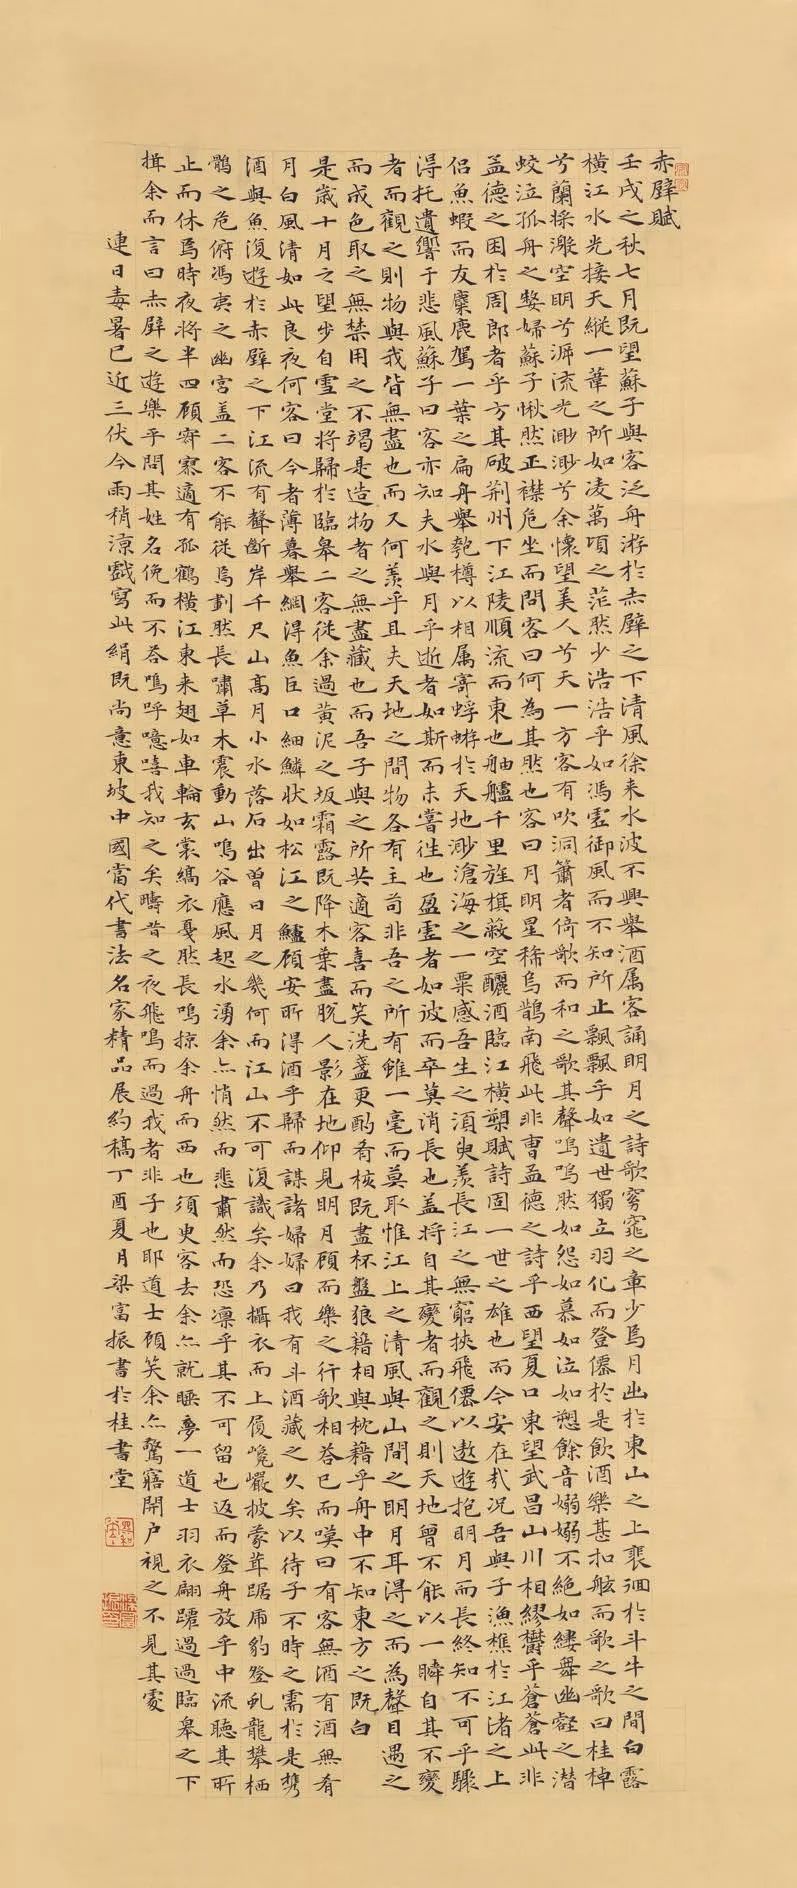 赤壁賦
壬戌之秋七月既望蘇子與客泛舟游於赤壁之下清風徐来水波不興舉酒属客誦明月之詩歌窈窕之章少焉月出於東山之上裴徊於斗牛之間白露
橫江水光接天縱一葦之所如凌萬頃之茫然浩浩乎如馮虛御風而不知所止飄飄乎如遺世獨立羽化而登僊於是飲酒樂甚扣舷而歌之歌曰桂棹
兮蘭槳擊空明兮泝流光渺渺兮余懷望美人兮天一方客有吹洞簫者倚歌而和之其聲嗚嗚然如怨如慕如泣如愬餘音嫋嫋不絕如縷舞幽壑之潛
蛟泣孤舟之嫠婦蘇子愀然正襟危坐而問客曰何為其然也客曰月明星稀烏鵲南飛此非曹孟德之詩乎西望夏口東望武昌山川相繆鬱乎蒼蒼此非
孟德之困於周郎者乎方其破荊州下江陵順流而東也舳艫千里旌旗蔽空釃酒臨江橫槊賦詩固一世之雄也而今安在哉况吾與子漁樵於江渚之上
侶魚蝦而友麋鹿駕一葉之扁舟舉匏樽以相属寄蜉蝣於天地渺滄海之一粟感吾生之須臾羨長江之無窮挾飛僊以遨遊抱明月而長終知不可乎驟
得托遺響于悲風蘇子曰客亦知夫水與月乎逝者如斯而未嘗徃也盈虛者如彼而卒莫消長也盖將自其變者而觀之則天地曾不能以一瞬自其不變
者而觀之則物與我皆無盡也而又何羨乎且夫天地之間物各有主苟非吾之所有雖一毫而莫取惟江上之清風與山間之明月耳得之而為聲目遇之
而成色取之無禁用之不竭是造物者之無盡藏也而吾子與之所共適客喜而笑洗盞更酌肴核既盡杯盤狼籍相與枕藉乎舟中不知東方之既白
是歲十月之望步自雪堂將歸於臨皋二客從余過黃泥之坂霜露既降木葉盡脫人影在地仰見明月顧而樂之行歌相荅已而嘆曰有客無酒有酒無肴
月白風清如此良夜何客曰今者薄暮舉網得魚巨口細鱗狀如松江之鱸顧安所得酒乎歸而謀諸婦婦曰我有斗酒藏之久矣以待子不時之需於是携
酒與魚復遊於赤壁之下江流有聲斷岸千尺山高月小水落石出曾日月之幾何而江山不可復識矣余乃攝衣而上履巉巖披蒙茸踞虎豹登虬龍攀栖
鶻之危俯馮夷之幽宮盖二客不能從焉劃然長嘯草木震動山鳴谷應風起水湧余亦悄然而悲肅然而恐凛乎其不可留也返而登舟放乎中流聽其所
止而休焉時夜將半四顧寂寥適有孤鶴橫江東来翅如車輪玄裳縞衣戛然長鳴掠余舟而西也須臾客去余亦就睡夢一道士羽衣翩躚過過臨皋之下
揖余而言曰赤壁之遊樂乎問其姓名俛而不荅嗚呼噫嘻我知之矣疇昔之夜飛鳴而過我者非子也耶道士顧笑余亦驚寤開户視之不見其處
連日毒暑已近三伏今雨稍涼戲寫此絹既尚意東坡中國當代書法名家精品展約稿丁酉夏月梁富振書於桂書堂